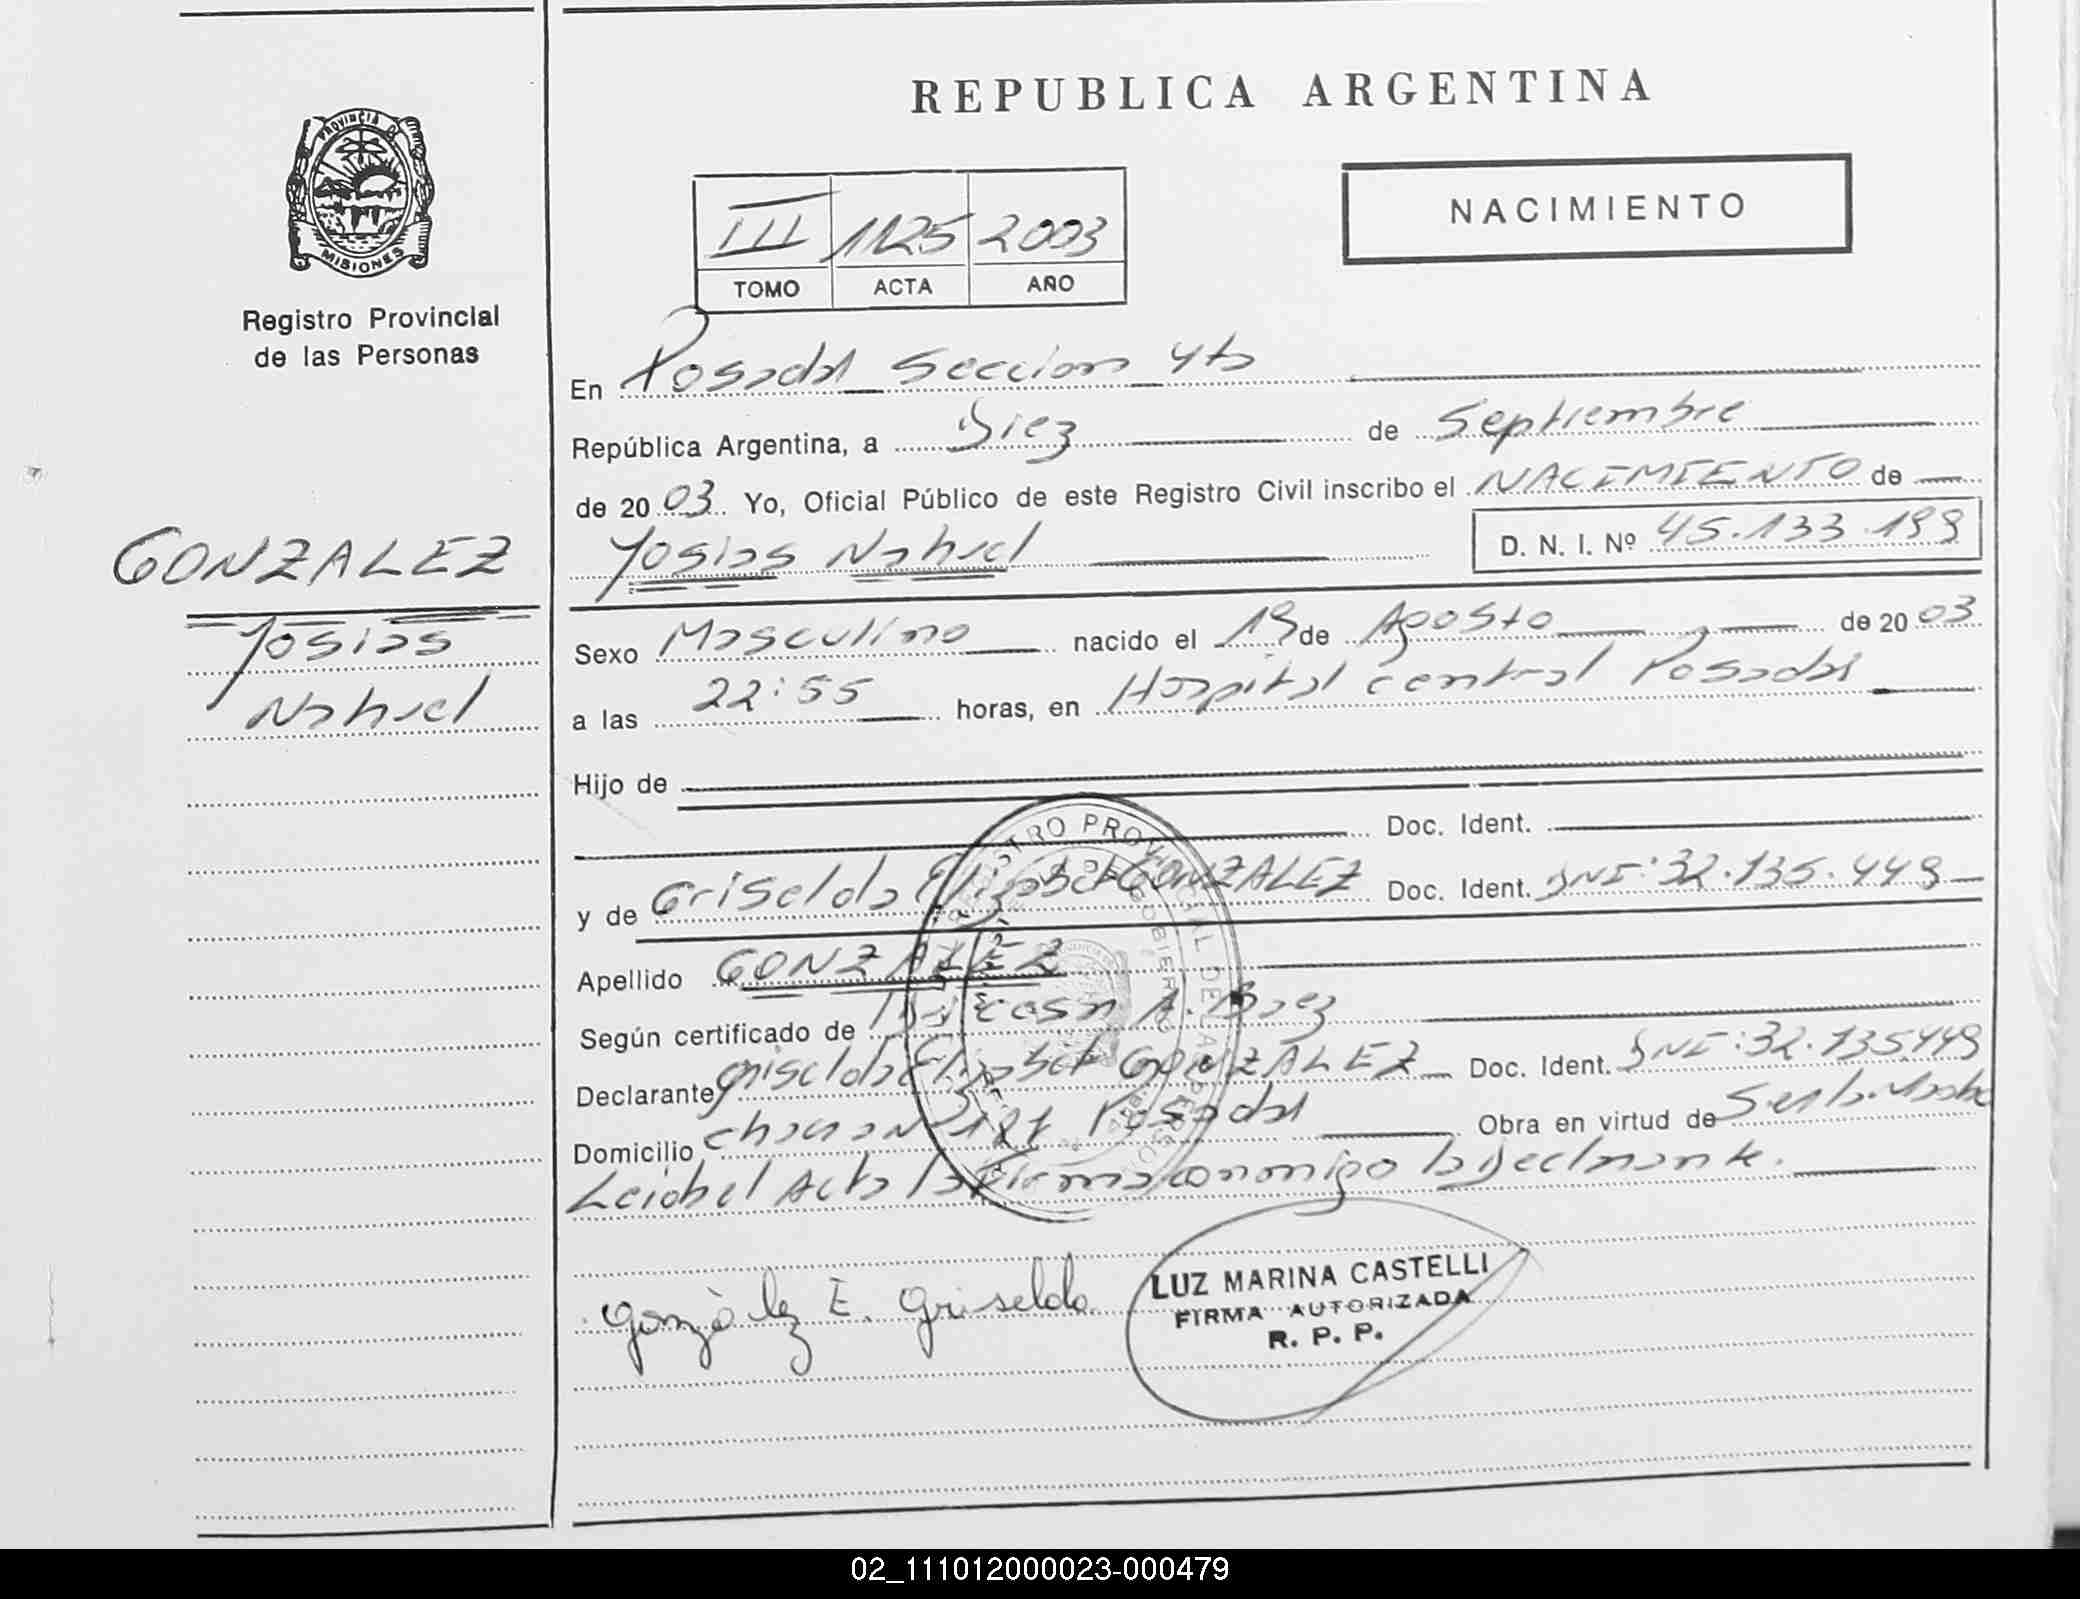 REPUBLICA ARGENTINA
PROVINCIA DE
MISIONES
Registro Provincial
de las Personas
III 1125 2003
TOMO ACTA AÑO
NACIMIENTO
En Posadas Seccion 4ta
República Argentina, a Diez de Septiembre
de 2003. Yo, Oficial Público de este Registro Civil inscribo el NACIMIENTO de
Yosias Nahuel D. N. I. Nº 45.133.199
GONZALEZ
Yosias
Nahuel
Sexo Masculino nacido el 19 de Agosto de 2003
a las 22:55 horas, en Hospital central Posadas
Hijo de
Doc. Ident.
y de Griselda Elizabet GONZALEZ Doc. Ident. DNI: 32.135.449
Apellido GONZALEZ
Según certificado de A. Baez
Declarante Griselda Elizabet GONZALEZ Doc. Ident. DNI: 32.135449
Domicilio Posadas Obra en virtud de
Leida el Acta la Firma conmigo la Declarante.
Gonzàlez E. Griselda
LUZ MARINA CASTELLI
FIRMA AUTORIZADA
R. P. P.
02_111012000023-000479